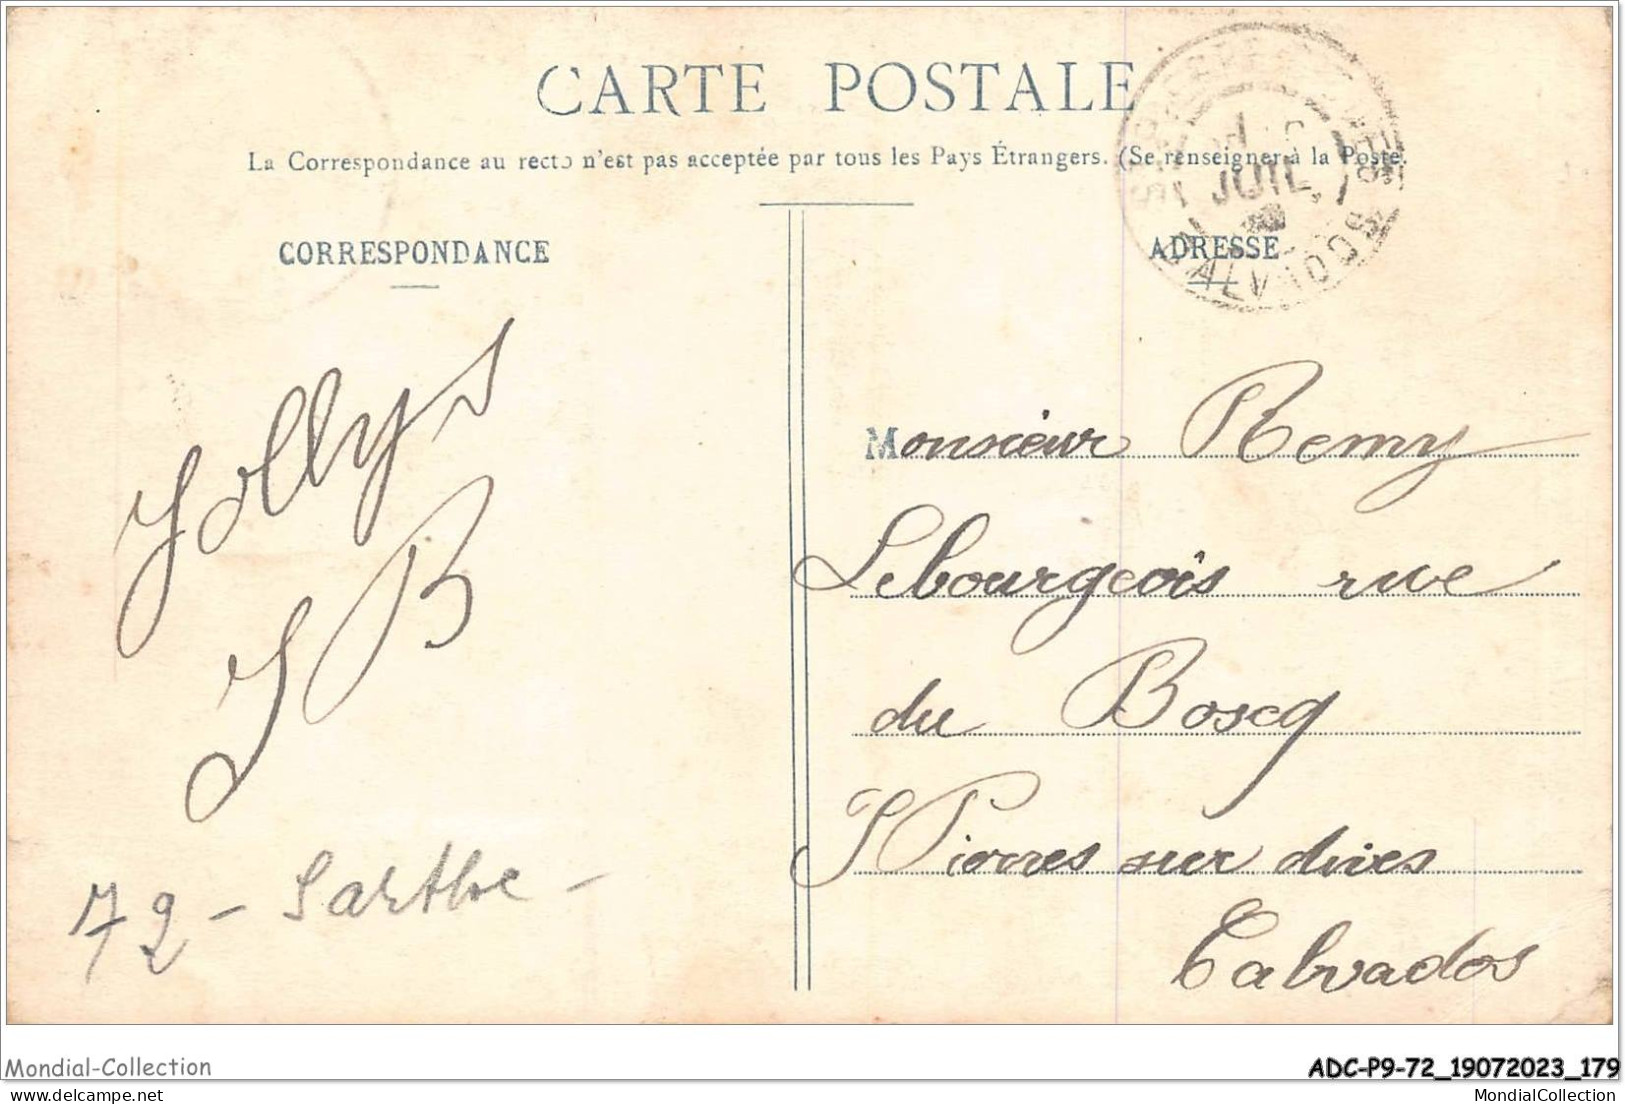 CARTE POSTALE
La Correspondance au recto n'est pas acceptée par tous les Pays Étrangers. (Se renseigner à la Poste.
CORRESPONDANCE
Jollys
J B
72 - Sarthe -
JUIL.
CALVADOS
ADRESSE
Monsieur Remy
Lebourgeois rue
du Boscq
St Pierres sur dives
Calvados
Mondial-Collection
ADC-P9-72_19072023_179
MondialCollection.net
MondialCollection